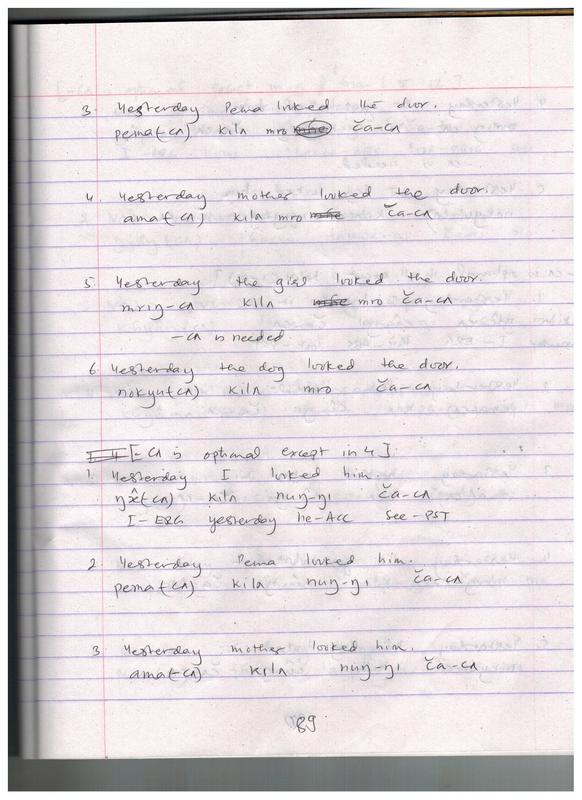 3. Yesterday Pema looked the door.
pema(-cʌ) kilʌ mro ča-cʌ
4. Yesterday mother looked the door.
ama(-cʌ) kilʌ mro ča-cʌ
5. Yesterday the girl looked the door.
mriŋ-cʌ kilʌ mro ča-cʌ
-cʌ is needed
6. Yesterday the dog looked the door.
nokyu(-cʌ) kilʌ mro ča-cʌ
[-cʌ is optional except in 4]
1. Yesterday I looked him.
(-cʌ) kilʌ nuŋ-ŋı ča-cʌ
I-ERG yesterday he-ACC see-PST
2. Yesterday Pema looked him.
pema(-cʌ) kilʌ nuŋ-ŋı ča-cʌ
3. Yesterday mother looked him.
ama(-cʌ) kılʌ nuŋ-ŋı ča-cʌ
89